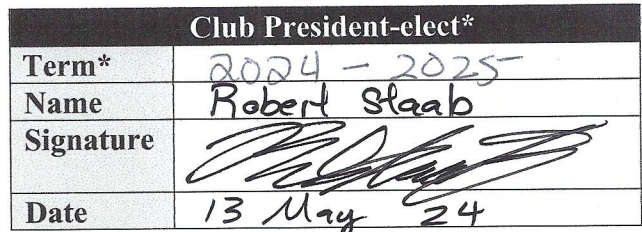 Club President-elect*
Term* 2024 - 2025
Name Robert Staab
Signature
Date 13 May 24